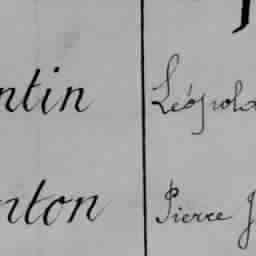 ntin Léopold
nton Pierre J